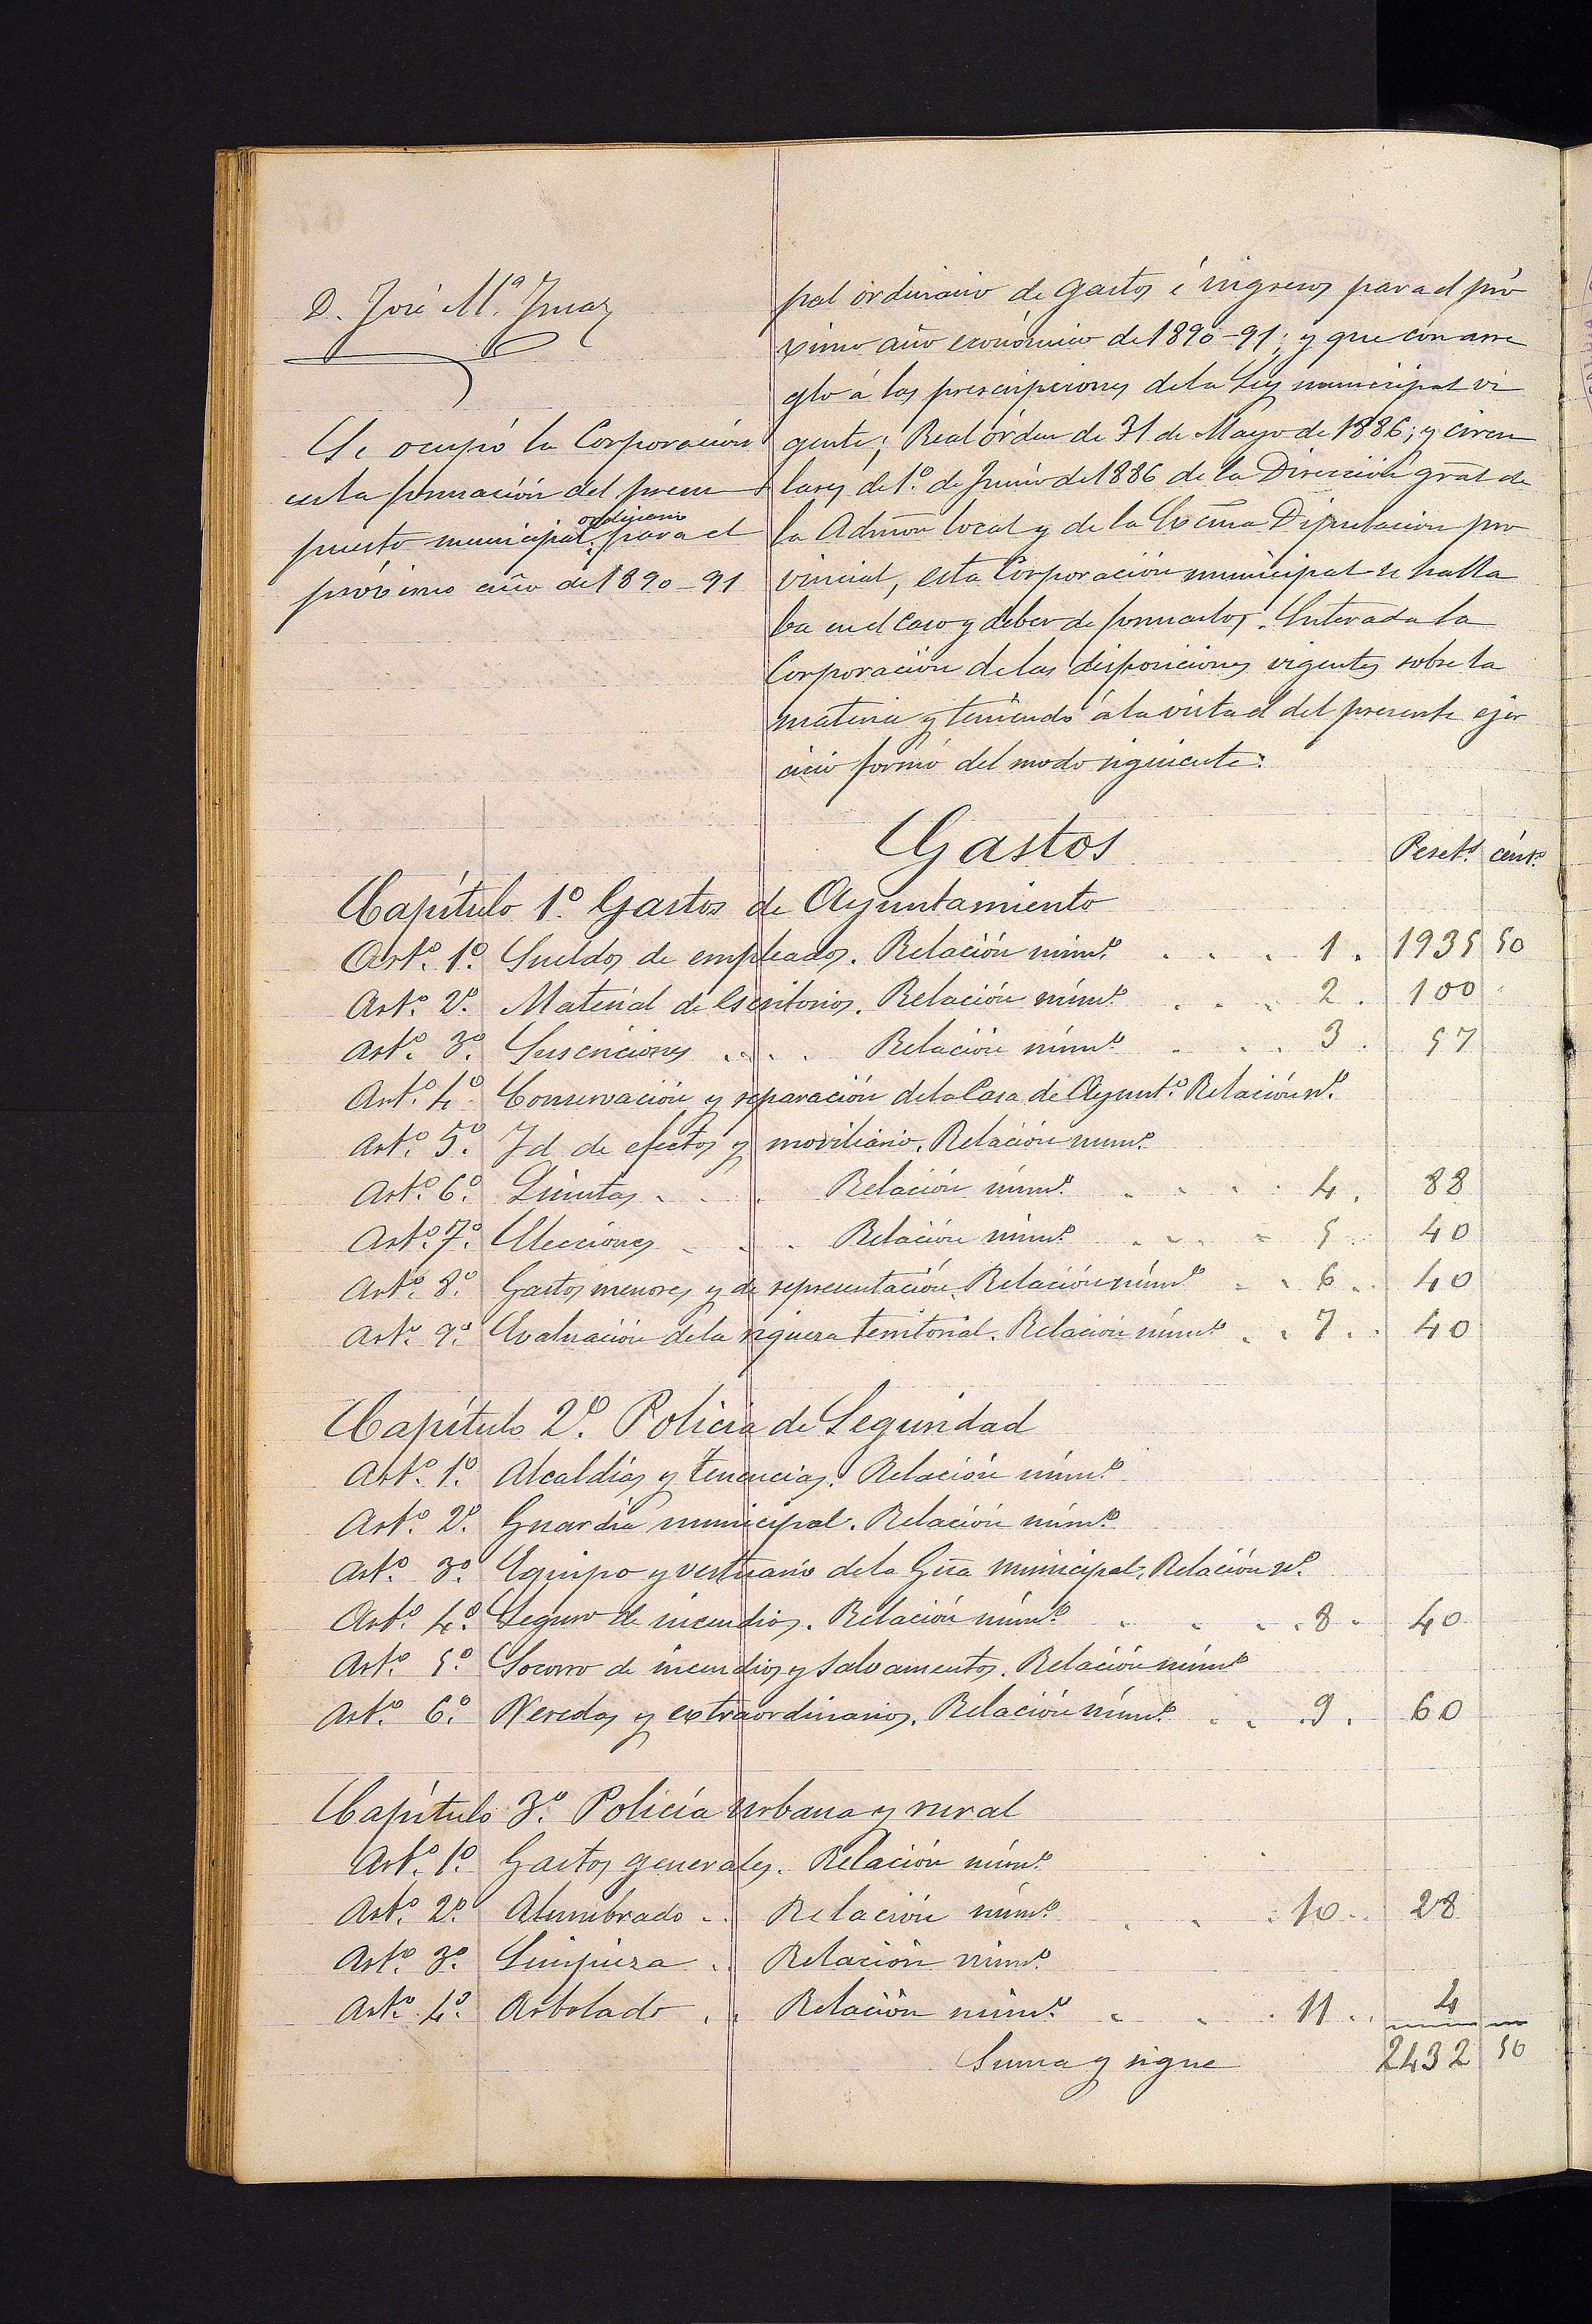 D. José M.ª Ymaz
Se ocupó la Corporación
en la formación del presu
puesto municipal ordinario para el
próximo año de 1890-91
pal órdinario de gastos é ingresos para el pró
ximo año económico de 1890-91; y que con arre
glo á las prescripciones de la Ley municipal vi
gente; Real órden de 31 de Mayo de 1886; y circu
lares de 1.º de Junio de 1886 de la Dirección gral de
la Admon local y de la Excma Diputación pro
vincial, esta Corporación municipal se halla
ba en el caso y deber de formarlos. Enterada la
Corporación de las disposiciones vigentes sobre la
materia y teniendo á la vista el del presente ejer
cicio formó del modo siguiente:
Gastos
Peset.s cént.s
Capítulo 1.º Gastos de Ayuntamiento
Art.º 1.º Sueldos de empleados. Relación núm.º . . . 1. 1935 50
Art.º 2.º Material de Escritorios. Relación núm.º . . . 2. 100
Art.º 3.º Suscriciones . . . Relación núm.º . . . 3. 57
Art.º 4.º Conservación y reparación de la Casa de Ayunt.º Relación n.º
Art.º 5.º Id de efectos y moviliario. Relación num.º
Art.º 6.º Quintas . . . Relación núm.º . . . . 4. 88
Art.º 7.º Elecciones . . . Relación núm.º . . . . 5 40
Art.º 8.º Gastos menores y de representación. Relación núm.º . . 6 . . 40
Art.º 9.º Evaluación de la riqueza territorial. Relación núm.º . . 7 . . 40
Capítulo 2.º Policia de Seguridad
Art.º 1.º Alcaldías y tenencias. Relación núm.º
Art.º 2.º Guardia municipal. Relación núm.º
Art.º 3.º Equipo y vestuario de la Gũa municipal. Relación n.º
Art.º 4.º Seguro de incendios. Relación núm.º . . . . 8 . 40
Art.º 5.º Socorro de incendios y salvamentos. Relación núm.º
Art.º 6.º Veredas y extraordinarios. Relación núm.º . . . 9 . 60
Capítulo 3.º Policía urbana y rural
Art.º 1.º Gastos generales. Relación núm.º
Art.º 2.º Alumbrado . . Relación núm.º . . . 10 . . 28
Art.º 3.º Limpieza . . Relación núm.º
Art.º 4.º Arbolado . . Relación núm.º . . . 11 . . 4
Suma y sigue 2432 50